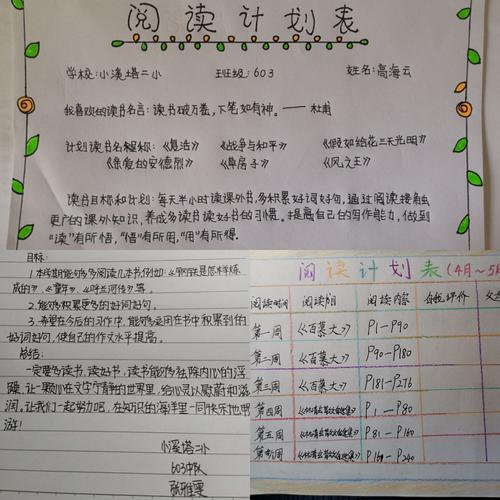 阅读计划表
学校:小溪塔二小 班级:603 姓名:高海云
我喜欢的读书名言:读书破万卷,下笔如有神。——杜甫
计划读书名称:《复活》 《战争与和平》 《假如给我三天光明》
《亲爱的安德烈》 《草房子》 《风之王》
读书目标和计划:每天半小时读课外书,多积累好词好句,通过阅读接触
更广的课外知识,养成多读书读好书的习惯。提高自己的写作能力,做到
“读”有所悟,“悟”有所用,“用”有所得.
目标:
1.本学期能够多多阅读几本书例如:《钢铁是怎样炼
成的》、《童年》、《呼兰河传》等。
2.能够积累更多的好词好句。
3.希望在今后的习作中,能够运用在书中积累到的
好词好句,使自己的作文水平提高。
总结:
一定要多读书,读好书,读书能够祛除内心的浮
躁,让一颗心在文字宁静的世界里,给心灵以慰藉和滋
润,让我们一起努力吧,在知识的海洋里一同快乐地畅
游!
小溪塔二小
603中队
张雅雯
阅读计划表(4月~5月
阅读时间 阅读书目 阅读内容 自我评价 父
第一周 《百慕大》 P1-P90
第二周 《百慕大》 P90-P180
第三周 《百慕大》 P181-P276
第四周 P1-P80
第五周 P81-P160
第六周 P240